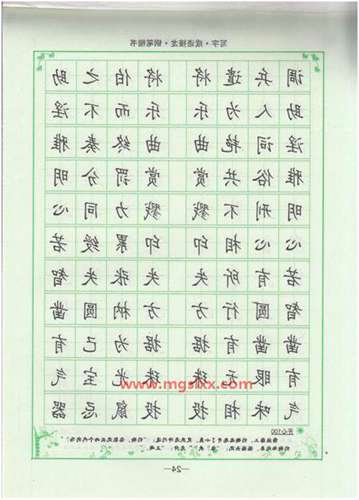 写字·成语接龙·钢笔楷书
调兵遣将 将伯之助
助人为乐 乐而不淫
淫词艳曲 曲终奏雅
雅俗共赏 赏罚分明
明刑不戮 戮力同心
心心相印 印累绶若
若有所失 失张失智
智圆行方 方枘圆凿
凿凿有据 据为己有
有眼无珠 珠光宝气
www.mgsxx.com
气味相投 投鼠忌器
开心100
—24—